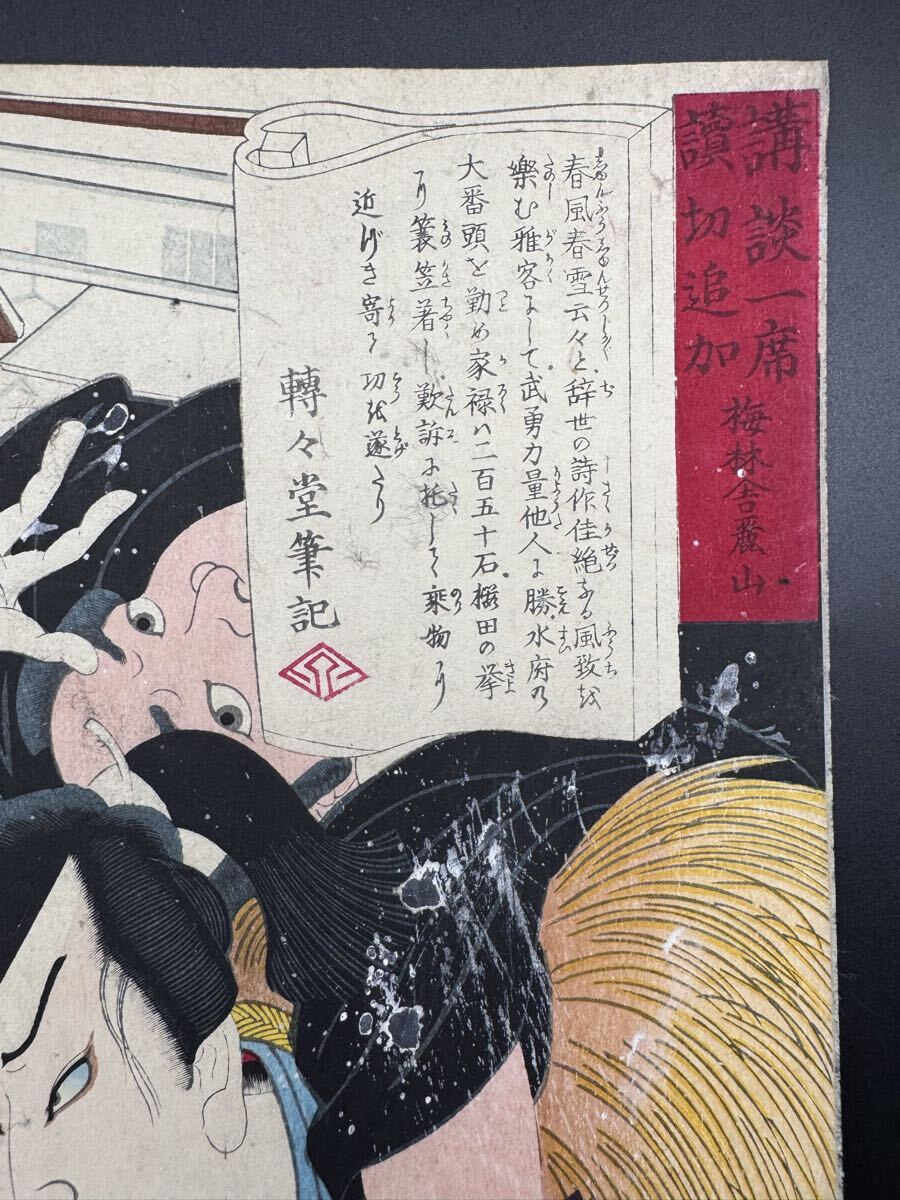 講談一席
讀切追加
梅林舎麗山
春風春雪云々と辞世の詩作佳絶なる風致を
樂む雅客にして武勇力量他人に勝水府の
大番頭を勤め家禄ハ二百五十石櫻田の挙
り簑笠着し歎訴に托して乘物に
近づき寄る功を遂たり
轉々堂筆記